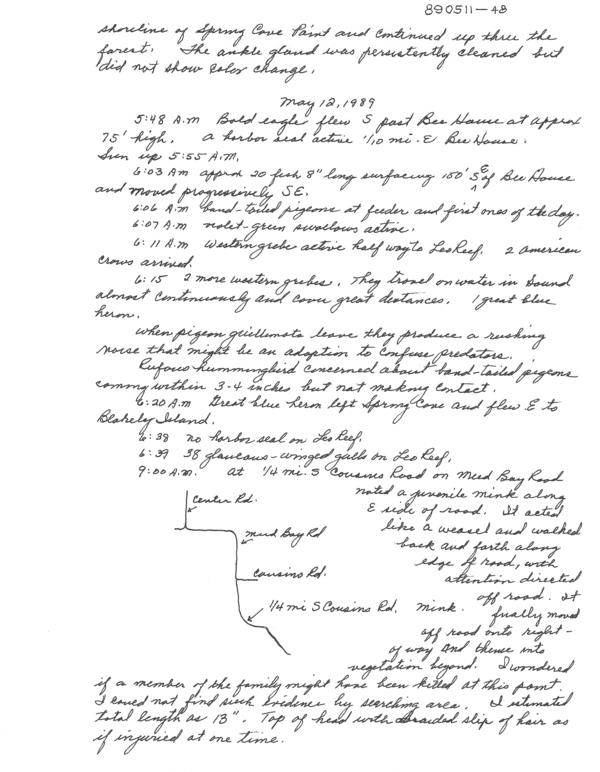 890511-4B
shoreline of Spring Cove Point and continued up thru the
forest. The ankle gland was persistently cleaned but
did not show color change.
May 12, 1989
5:48 A.M Bald eagle flew S past Bee House at approx
75' high. A harbor seal active 1/10 mi. E Bee House.
Sun up 5:55 A.M.
6:03 AM approx 20 fish 8" long surfacing 150' S E of Bee House
and moved progressively SE.
6:06 A.M band-tailed pigeons at feeder and first ones of the day.
6:07 A.M violet-green swallows active.
6:11 A.M Western grebe active half way to Leo Reef. 2 American
crows arrived.
6:15 2 more western grebes. They travel on water in Sound
almost continuously and cover great distances. 1 great blue
heron.
When pigeon guillemots leave they produce a rushing
noise that might be an adaption to confuse predators.
Rufous hummingbird concerned about band-tailed pigeons
comming within 3-4 inches but not making contact.
6:20 A.M Great blue heron left Spring Cove and flew E to
Blakely Island.
6:38 no harbor seal on Leo Reef.
6:39 38 glaucous-winged gulls on Leo Reef.
9:00 A.M. At 1/4 mi. S Cousins Road on Mud Bay Road
noted a juvenile mink along
E side of road. It acted
like a weasel and walked
back and forth along
edge of road, with
attention directed
off road. It
finally moved
off road onto right-
of way and thence into
vegetation beyond. I wondered
Center Rd.
Mud Bay Rd
Cousins Rd.
1/4 mi S Cousins Rd. mink.
if a member of the family might have been killed at this point.
I could not find such evidence by searching area. I estimated
total length as 13". Top of head with braided slip of hair as
if injuried at one time.